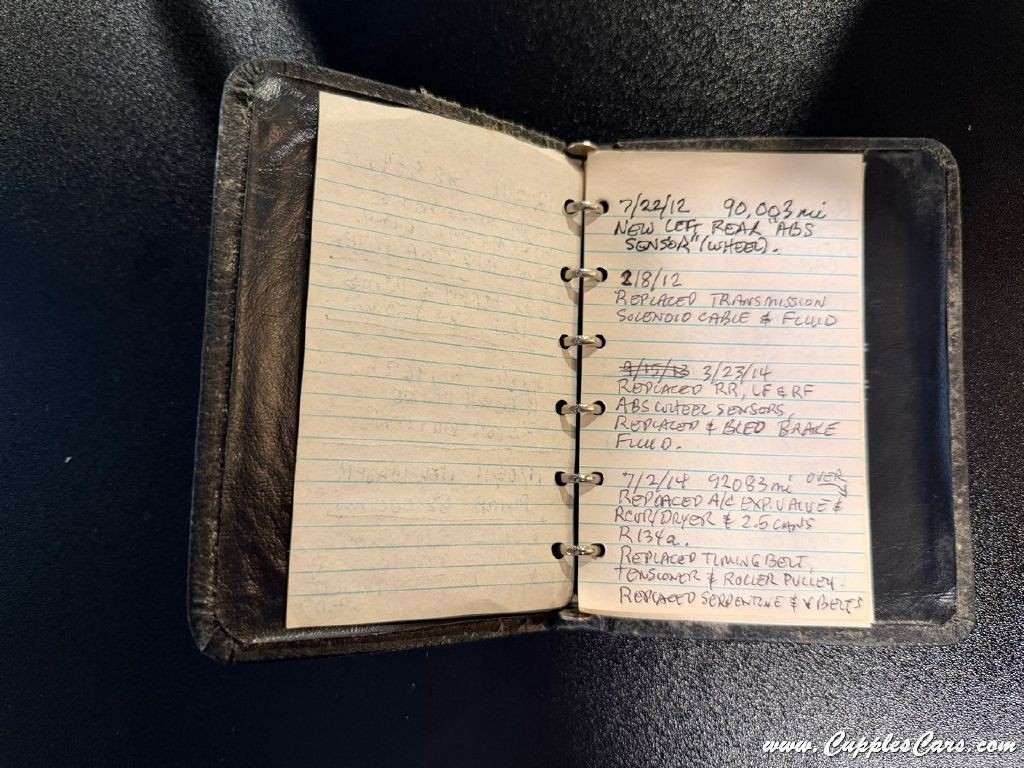 7/22/12 90,003 mi
NEW LEFT REAR "ABS
SENSOR" (WHEEL).
/8/12
REPLACED TRANSMISSION
SOLENOID CABLE & FLUID
9/15/13 3/23/14
REPLACED RR, LF & RF
ABS WHEEL SENSORS,
REPLACED & BLED BRAKE
FLUID.
7/2/14 92083 mi OVER
REPLACED A/C EXP. VALVE &
RCVR/DRYER & 2.5 CANS
R134a.
REPLACED TIMING BELT,
TENSIONER & ROLLER PULLEY.
REPLACED SERPENTINE & V BELTS
www.CupplesCars.com